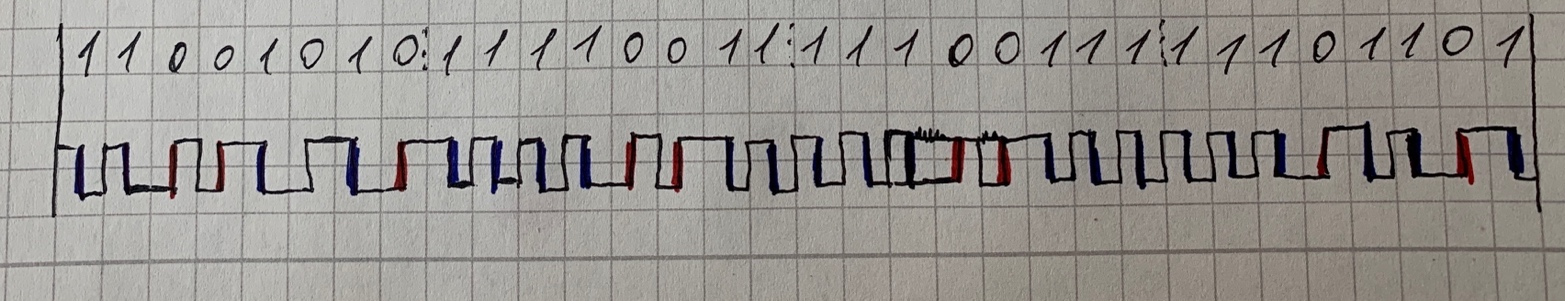 1 1 0 0 1 0 1 0 ⋮ 1 1 1 1 0 0 1 1 ⋮ 1 1 1 0 0 1 1 1 ⋮ 1 1 1 0 1 1 0 1